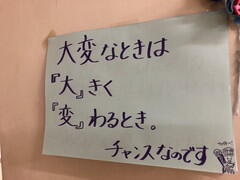 大変なときは
『大』きく
『変』わるとき。
チャンスなのです